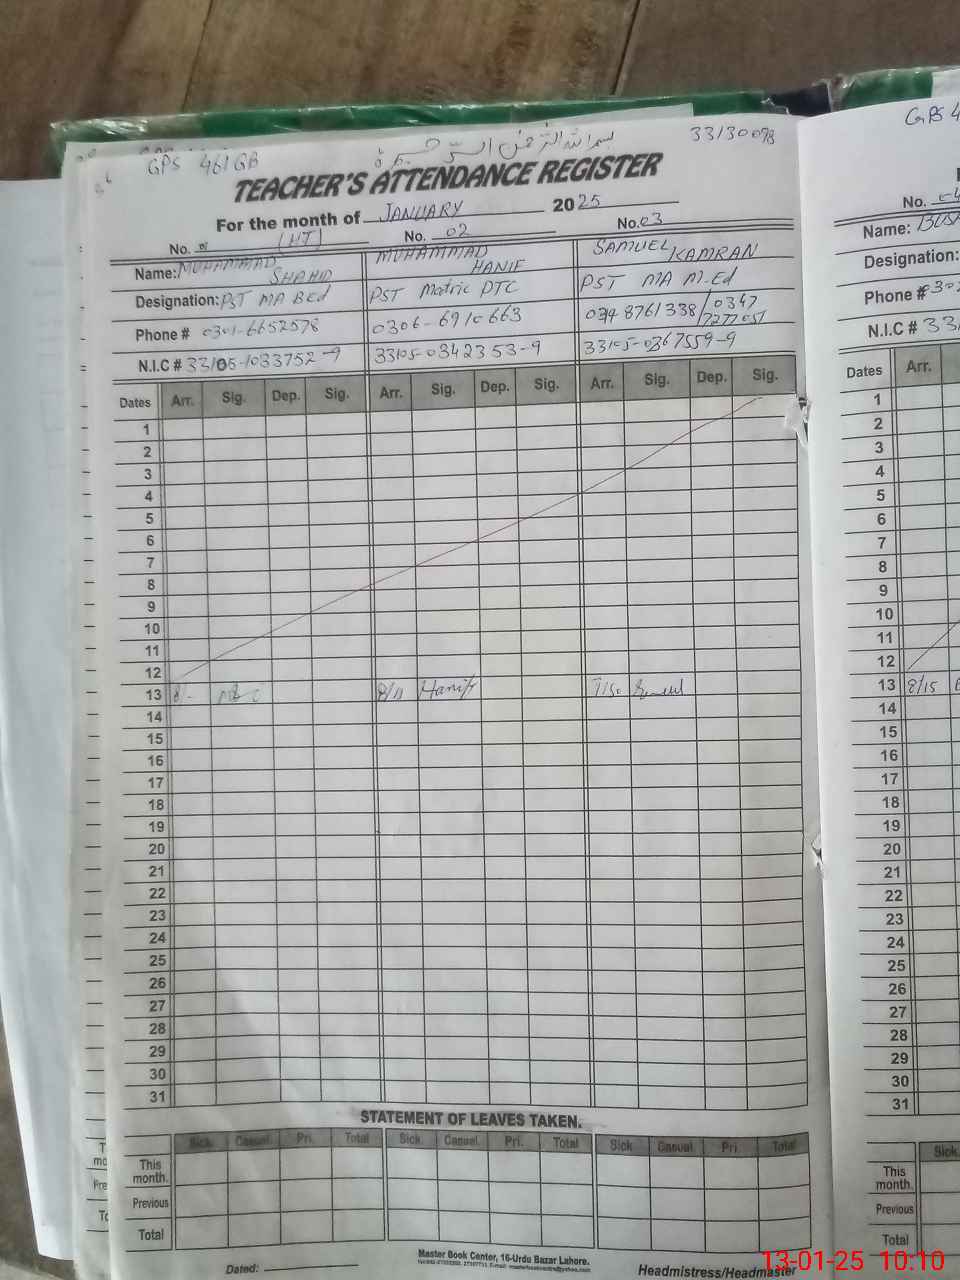 GPS 461 GB
33130098
TEACHER'S ATTENDANCE REGISTER
For the month of JANUARY 2025
No. 01 (HT) No. 02 No. 03
Name: MUHAMMAD SHAHID MUHAMMAD HANIF SAMUEL KAMRAN
Designation: PST MA BEd PST Matric PTC PST MA M-Ed
Phone # 0301-6652578 0306-6910663 0348761338/0347 7277051
N.I.C # 33105-1033752-9 33105-0342353-9 33105-0367559-9
Dates Arr. Sig. Dep. Sig. Arr. Sig. Dep. Sig. Arr. Sig. Dep. Sig.
1
2
3
4
5
6
7
8
9
10
11
12
13 8/- 8/11 Hanif 7/50
14
15
16
17
18
19
20
21
22
23
24
25
26
27
28
29
30
31
STATEMENT OF LEAVES TAKEN.
Sick. Casual. Pri. Total Sick. Casual. Pri. Total Sick Casual Pri. Total
This month.
Previous
Total
Master Book Center, 16-Urdu Bazar Lahore.
Dated:
Headmistress/Headmaster
GPS 4
No.
Name:
Designation:
Phone #
N.I.C # 33
Dates Arr.
1
2
3
4
5
6
7
8
9
10
11
12
13 8/15
14
15
16
17
18
19
20
21
22
23
24
25
26
27
28
29
30
31
Sick.
This month.
Previous
Total
13-01-25 10:10